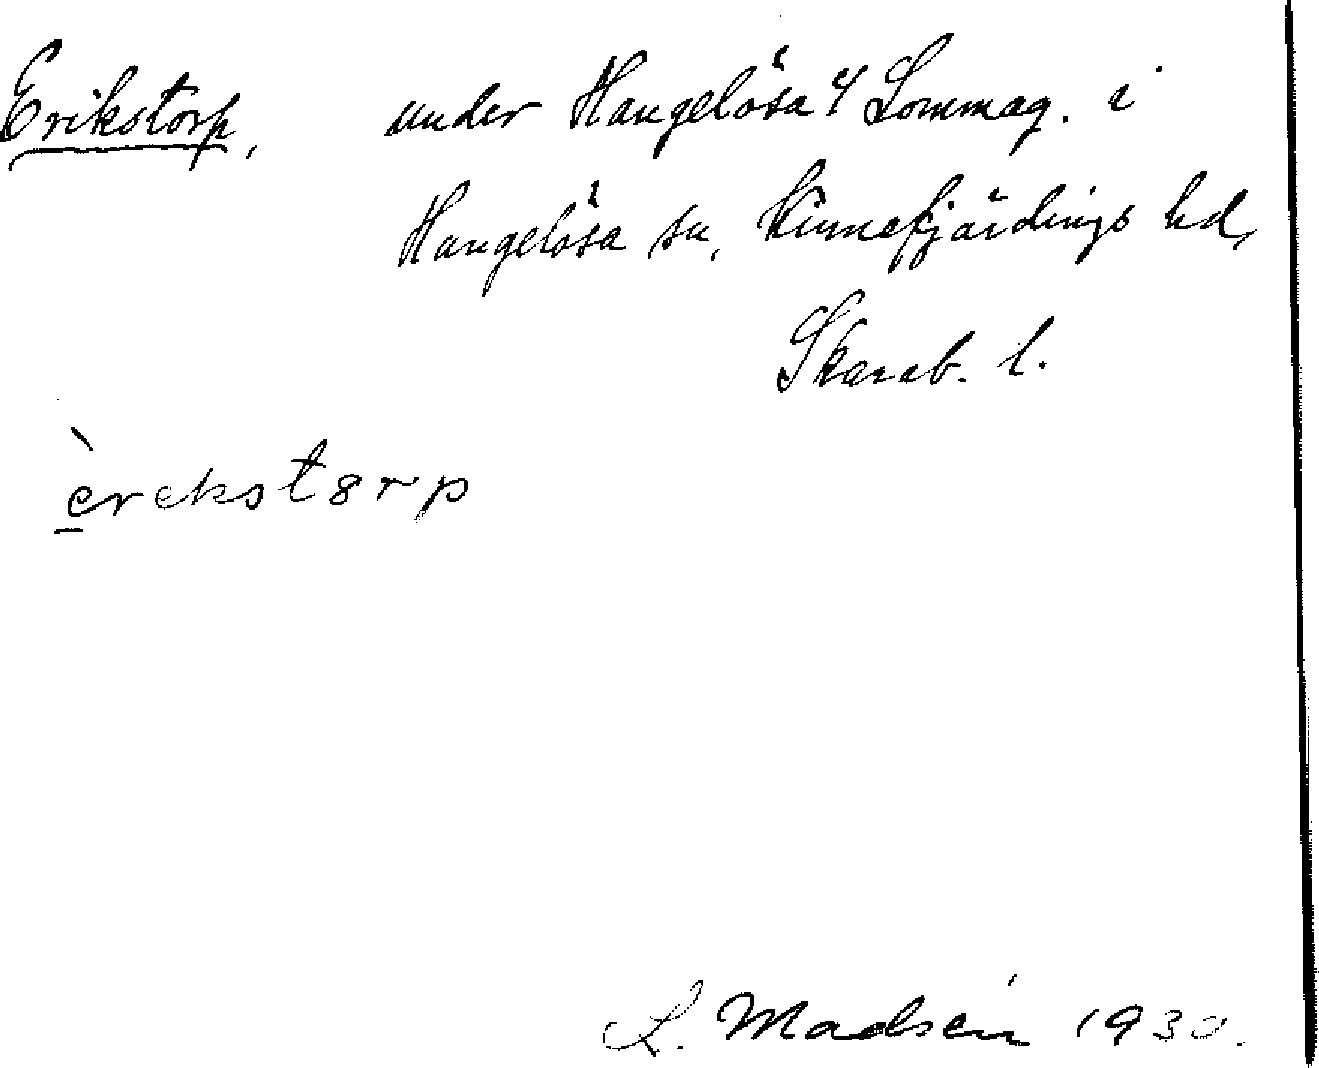 Erikstorp, under Hangelösa 4 Sommag. i
Hangelösa sn, Kinnefjärdings hd,
Skarab. l.
èrekstorp
L. Madsén 1930.